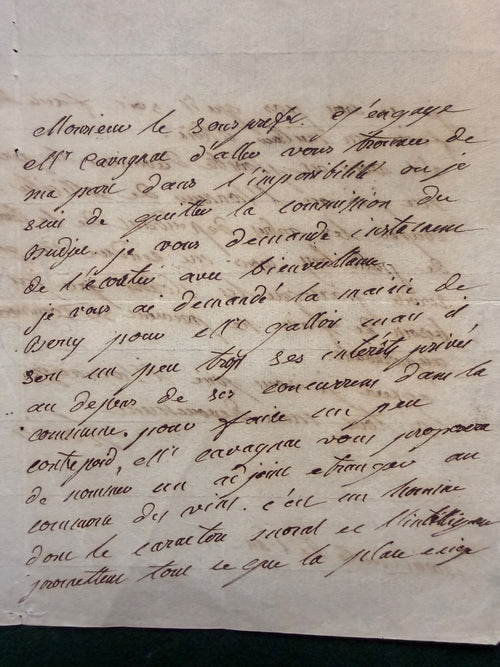 Monsieur le sous préfet. j'engage
Mr Cavagnac d'aller vous trouver de
ma part dans l'impossibilité ou je
suis de quitter la commission du
Budjet. je vous demande instamment
de l'écouter avec bienveillance.
je vous ai demandé la mairie de
Bercy pour Mr Gallois mais il
sert un peu trop ses intérêts privés
au depens de ses concurrens dans la
commune. pour faire un peu
contrepoid, Mr Cavagnac vous proposera
de nommer un adjoint etranger au
commerce des vins. c'est un homme
dont le caractere moral et l'intelligence
promettent tout ce que la place exige